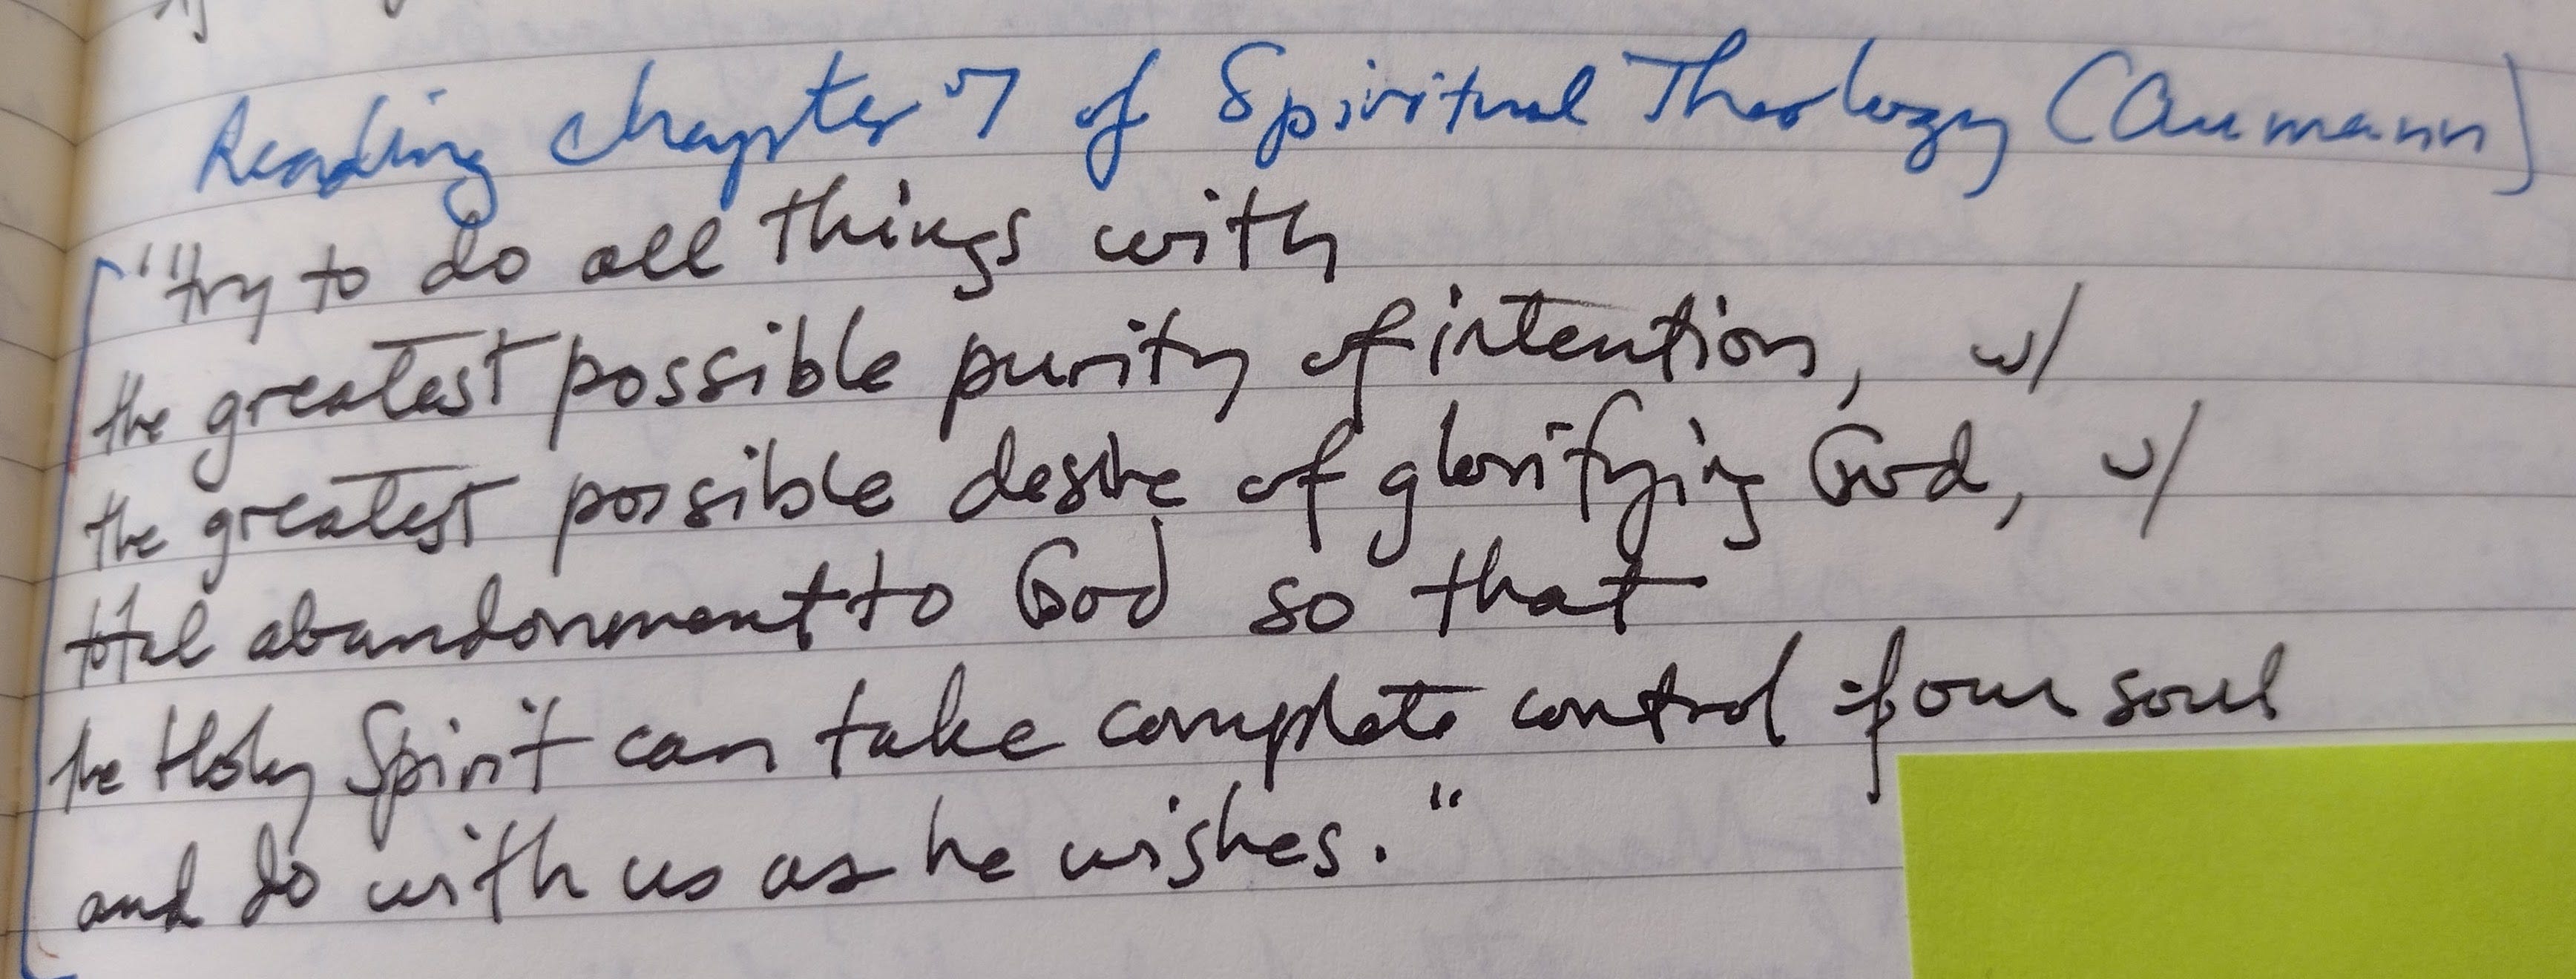 Reading chapter 7 of Spiritual Theology (Aumann)
"try to do all things with
the greatest possible purity of intention, w/
the greatest possible desire of glorifying God, w/
total abandonment to God so that
the Holy Spirit can take complete control of our soul
and do with us as he wishes."